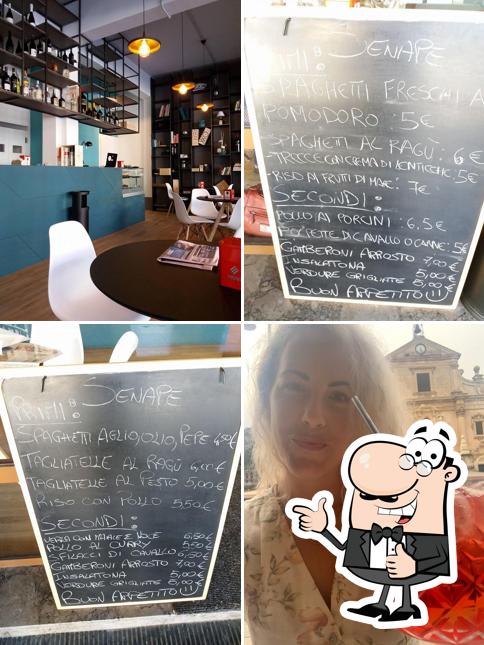 SENAPE
PRIMI:
SPAGHETTI FRESCHI A
POMODORO : 5€
SPAGHETTI AL RAGÙ : 6€
TRECCE CON CREMA DI LENTICCHIE: 5€
RISO AI FRUTTI DI MARE: 7€
SECONDI:
POLLO AI PORCINI : 6,5€
POLPETTE DI CAVALLO O CARNE: 5€
GAMBERONI ARROSTO 7,00€
INSALATONA 5,00€
VERDURE GRIGLIATE 5,00€
BUON APPETITO (!!)
SENAPE
PRIMI:
SPAGHETTI AGLIO, OLIO, PEPE 4,50€
TAGLIATELLE AL RAGÙ 6,00€
TAGLIATELLE AL PESTO 5,00€
RISO CON POLLO 5,50€
SECONDI:
VERZA CON MAIALE E NOCE 6,50€
POLLO AL CURRY 5,50€
SFILACCI DI CAVALLO 6,50€
GAMBERONI ARROSTO 7,00€
INSALATONA 5,00€
VERDURE GRIGLIATE 5,00€
BUON APPETITO (!!)